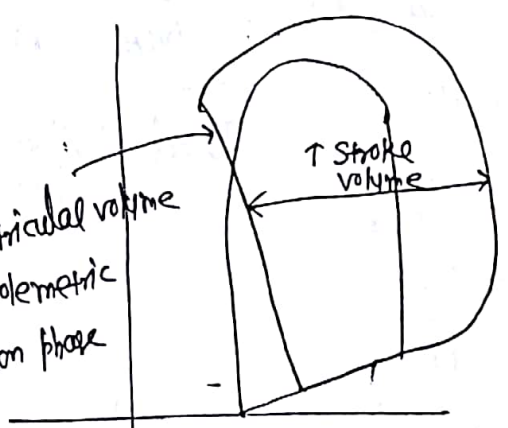 ↑ Stroke
volume
riculal volume
olemetric
on phase